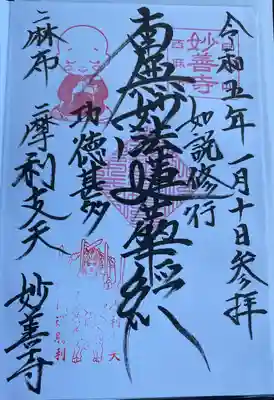 令和五年一月十日参拝
如説修行
南無妙法蓮華経
功徳甚多
麻布
摩利支天
妙善寺
妙善寺
西麻